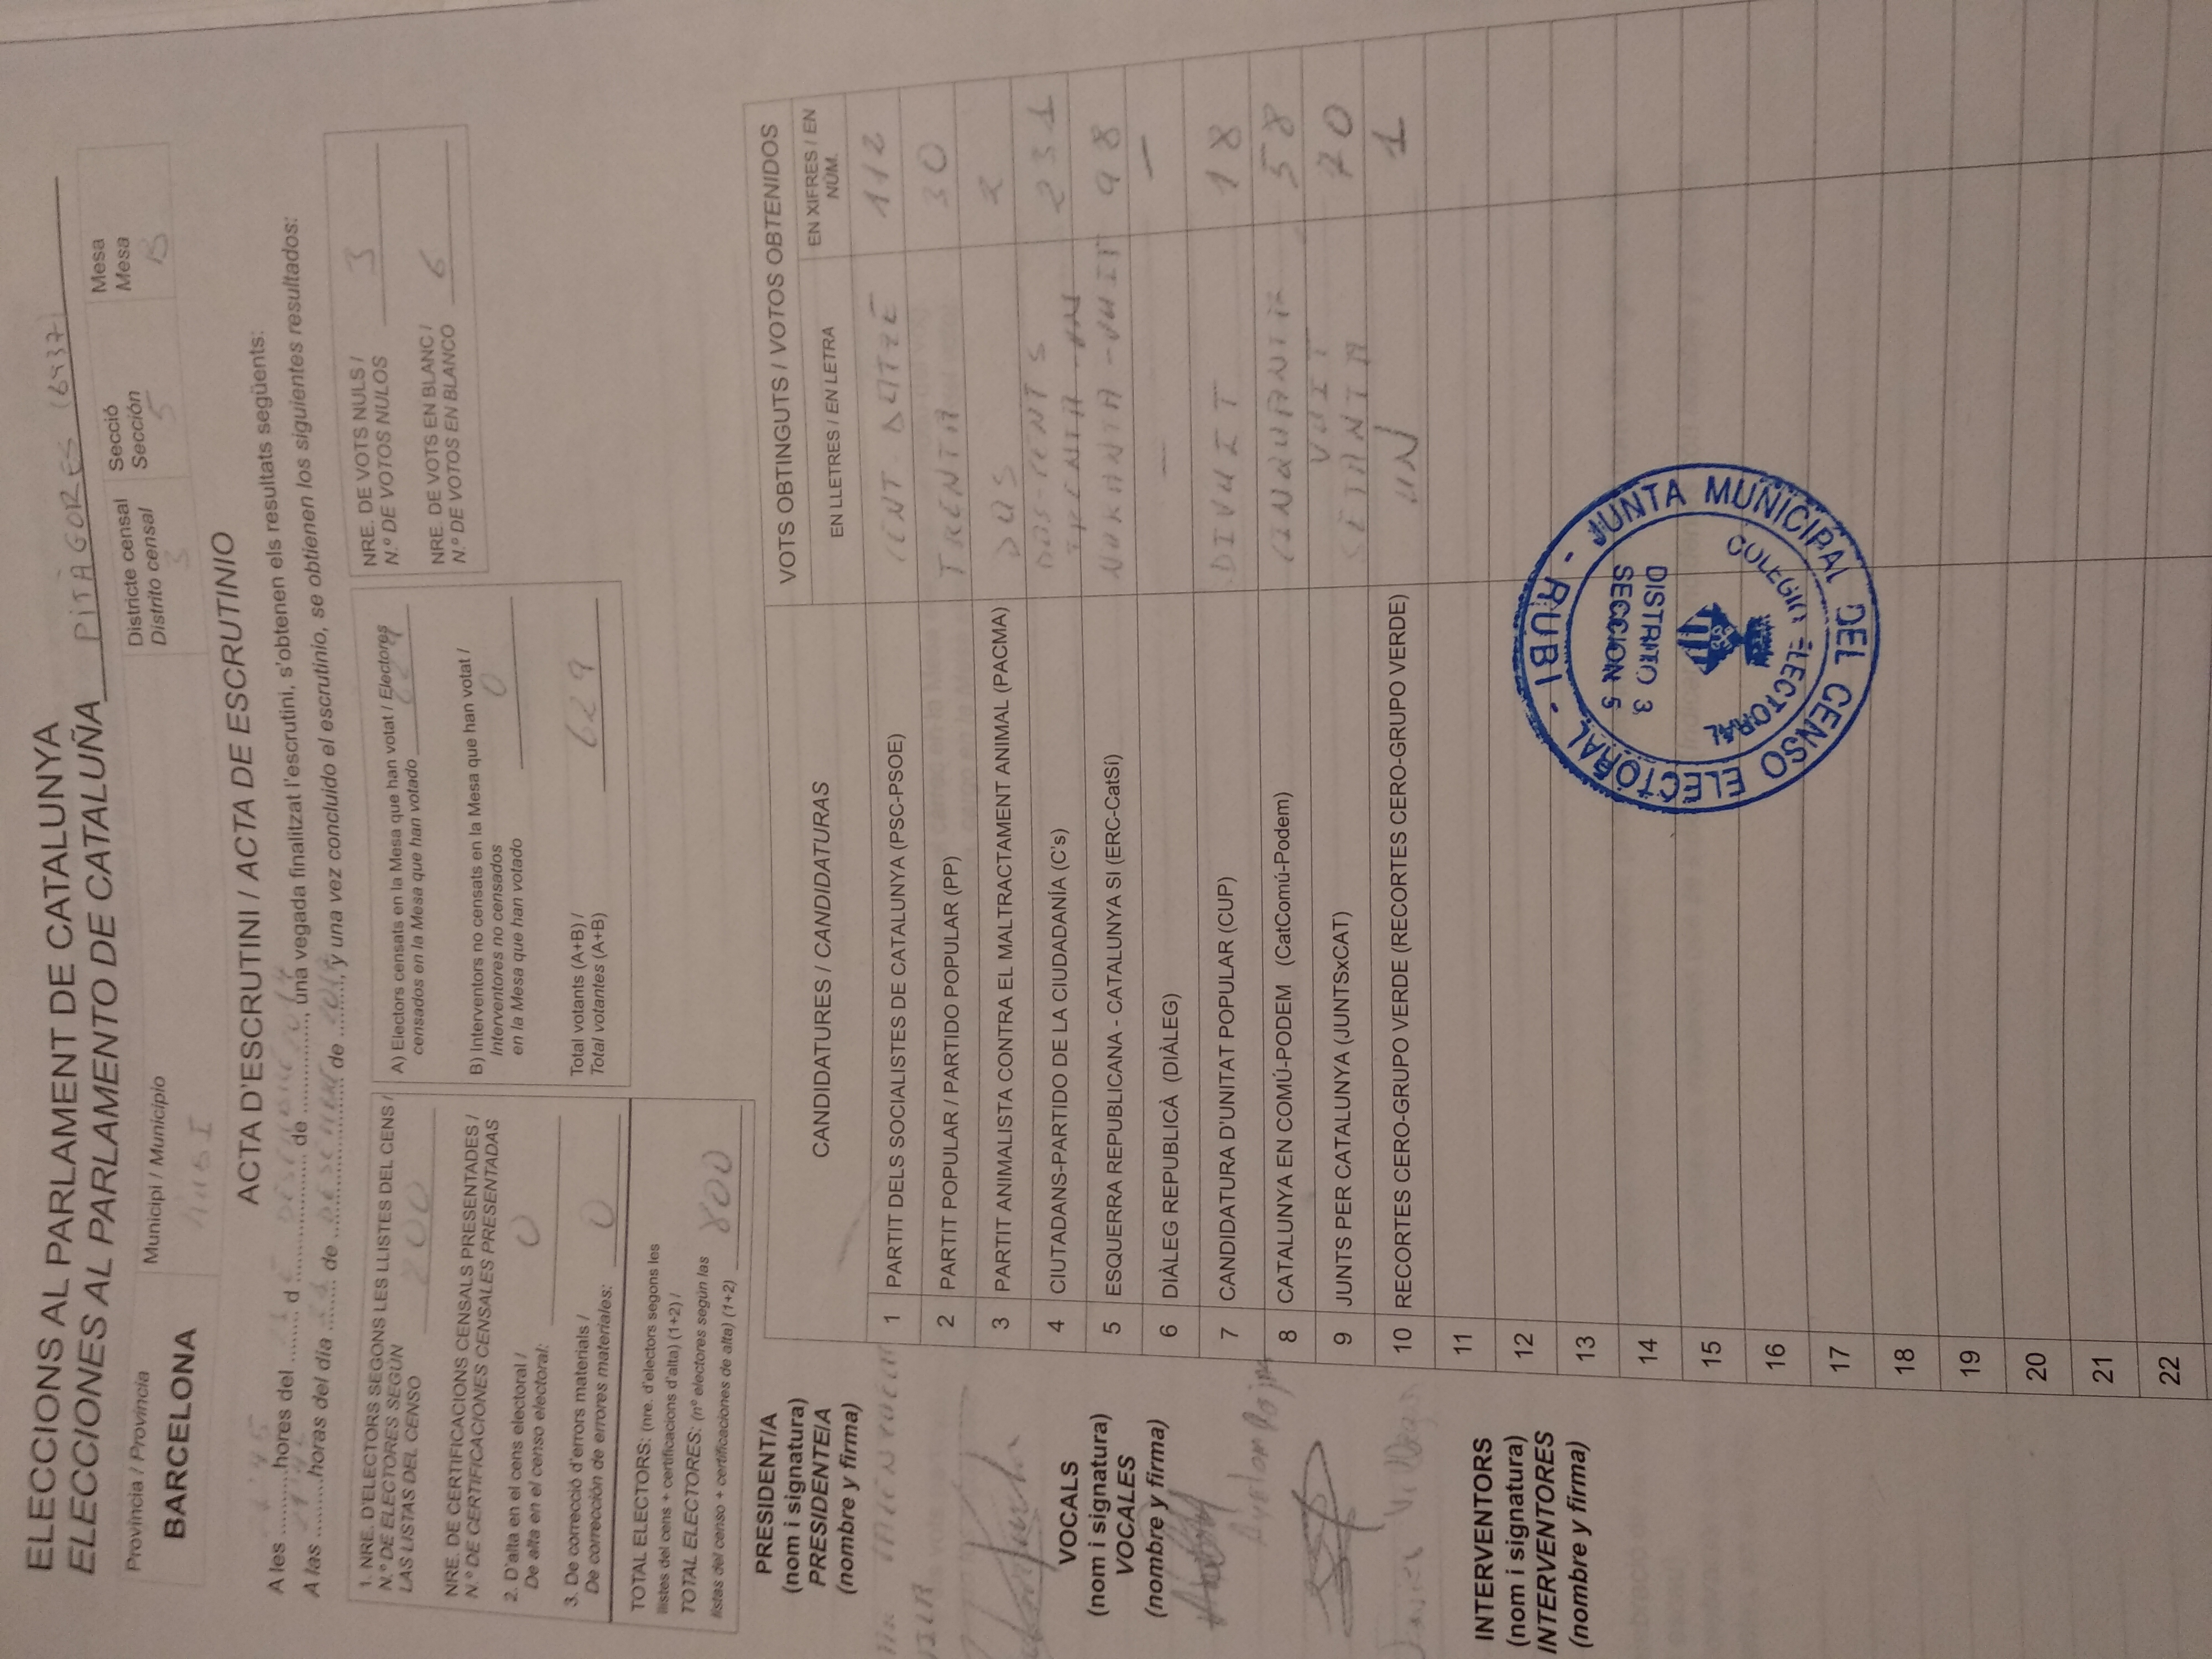 ELECCIONS AL PARLAMENT DE CATALUNYA
ELECCIONES AL PARLAMENTO DE CATALUÑA PITÀGORES (6437)
Província / Provincia
BARCELONA
Municipi / Municipio
RUBI
Districte censal
Distrito censal
3
Secció
Sección
5
Mesa
Mesa
B
ACTA D'ESCRUTINI / ACTA DE ESCRUTINIO
A les ..........hores del ........ d .................... de ..............., una vegada finalitzat l'escrutini, s'obtenen els resultats següents:
A las 21'45 horas del día 21 de DESEMBRE de 2017, y una vez concluido el escrutinio, se obtienen los siguientes resultados:
1. NRE. D'ELECTORS SEGONS LES LLISTES DEL CENS /
N.º DE ELECTORES SEGÚN
LAS LISTAS DEL CENSO 800
NRE. DE CERTIFICACIONS CENSALS PRESENTADES /
N.º DE CERTIFICACIONES CENSALES PRESENTADAS
2. D'alta en el cens electoral /
De alta en el censo electoral: 0
3. De correcció d'errors materials /
De corrección de errores materiales: 0
TOTAL ELECTORS: (nre. d'electors segons les
llistes del cens + certificacions d'alta) (1+2) /
TOTAL ELECTORES: (nº electores según las
listas del censo + certificaciones de alta) (1+2) 800
A) Electors censats en la Mesa que han votat / Electores
censados en la Mesa que han votado 629
B) Interventors no censats en la Mesa que han votat /
Interventores no censados
en la Mesa que han votado 0
Total votants (A+B) /
Total votantes (A+B) 629
NRE. DE VOTS NULS /
N.º DE VOTOS NULOS 3
NRE. DE VOTS EN BLANC /
N.º DE VOTOS EN BLANCO 6
PRESIDENT/A
(nom i signatura)
PRESIDENTE/A
(nombre y firma)
VOCALS
(nom i signatura)
VOCALES
(nombre y firma)
Javier Villegas
INTERVENTORS
(nom i signatura)
INTERVENTORES
(nombre y firma)
CANDIDATURES / CANDIDATURAS
VOTS OBTINGUTS / VOTOS OBTENIDOS
EN LLETRES / EN LETRA
EN XIFRES / EN
NÚM.
1 PARTIT DELS SOCIALISTES DE CATALUNYA (PSC-PSOE) CENT DOTZE 112
2 PARTIT POPULAR / PARTIDO POPULAR (PP) TRENTA 30
3 PARTIT ANIMALISTA CONTRA EL MALTRACTAMENT ANIMAL (PACMA) DOS 2
4 CIUTADANS-PARTIDO DE LA CIUDADANÍA (C's) DOS-CENTS TRENTA-UN 231
5 ESQUERRA REPUBLICANA - CATALUNYA SI (ERC-CatSí) NORANTA-VUIT 98
6 DIÀLEG REPUBLICÀ (DIÀLEG) — —
7 CANDIDATURA D'UNITAT POPULAR (CUP) DIVUIT 18
8 CATALUNYA EN COMÚ-PODEM (CatComú-Podem) CINQUANTA VUIT 58
9 JUNTS PER CATALUNYA (JUNTSxCAT) SETANTA 70
10 RECORTES CERO-GRUPO VERDE (RECORTES CERO-GRUPO VERDE) UN 1
11
12
13
14
15
16
17
18
19
20
21
22
JUNTA MUNICIPAL DEL CENSO ELECTORAL - RUBI -
COLEGIO ELECTORAL
DISTRITO 3
SECCION 5